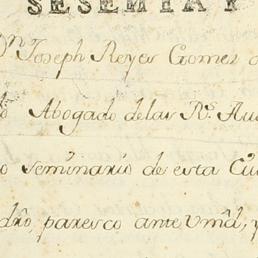 SESENTA Y
Dn Joseph Reyes Gomez
Abogado delas Rs. Au
o seminario de esta Ciu
dro, paresco ante Vmd, y